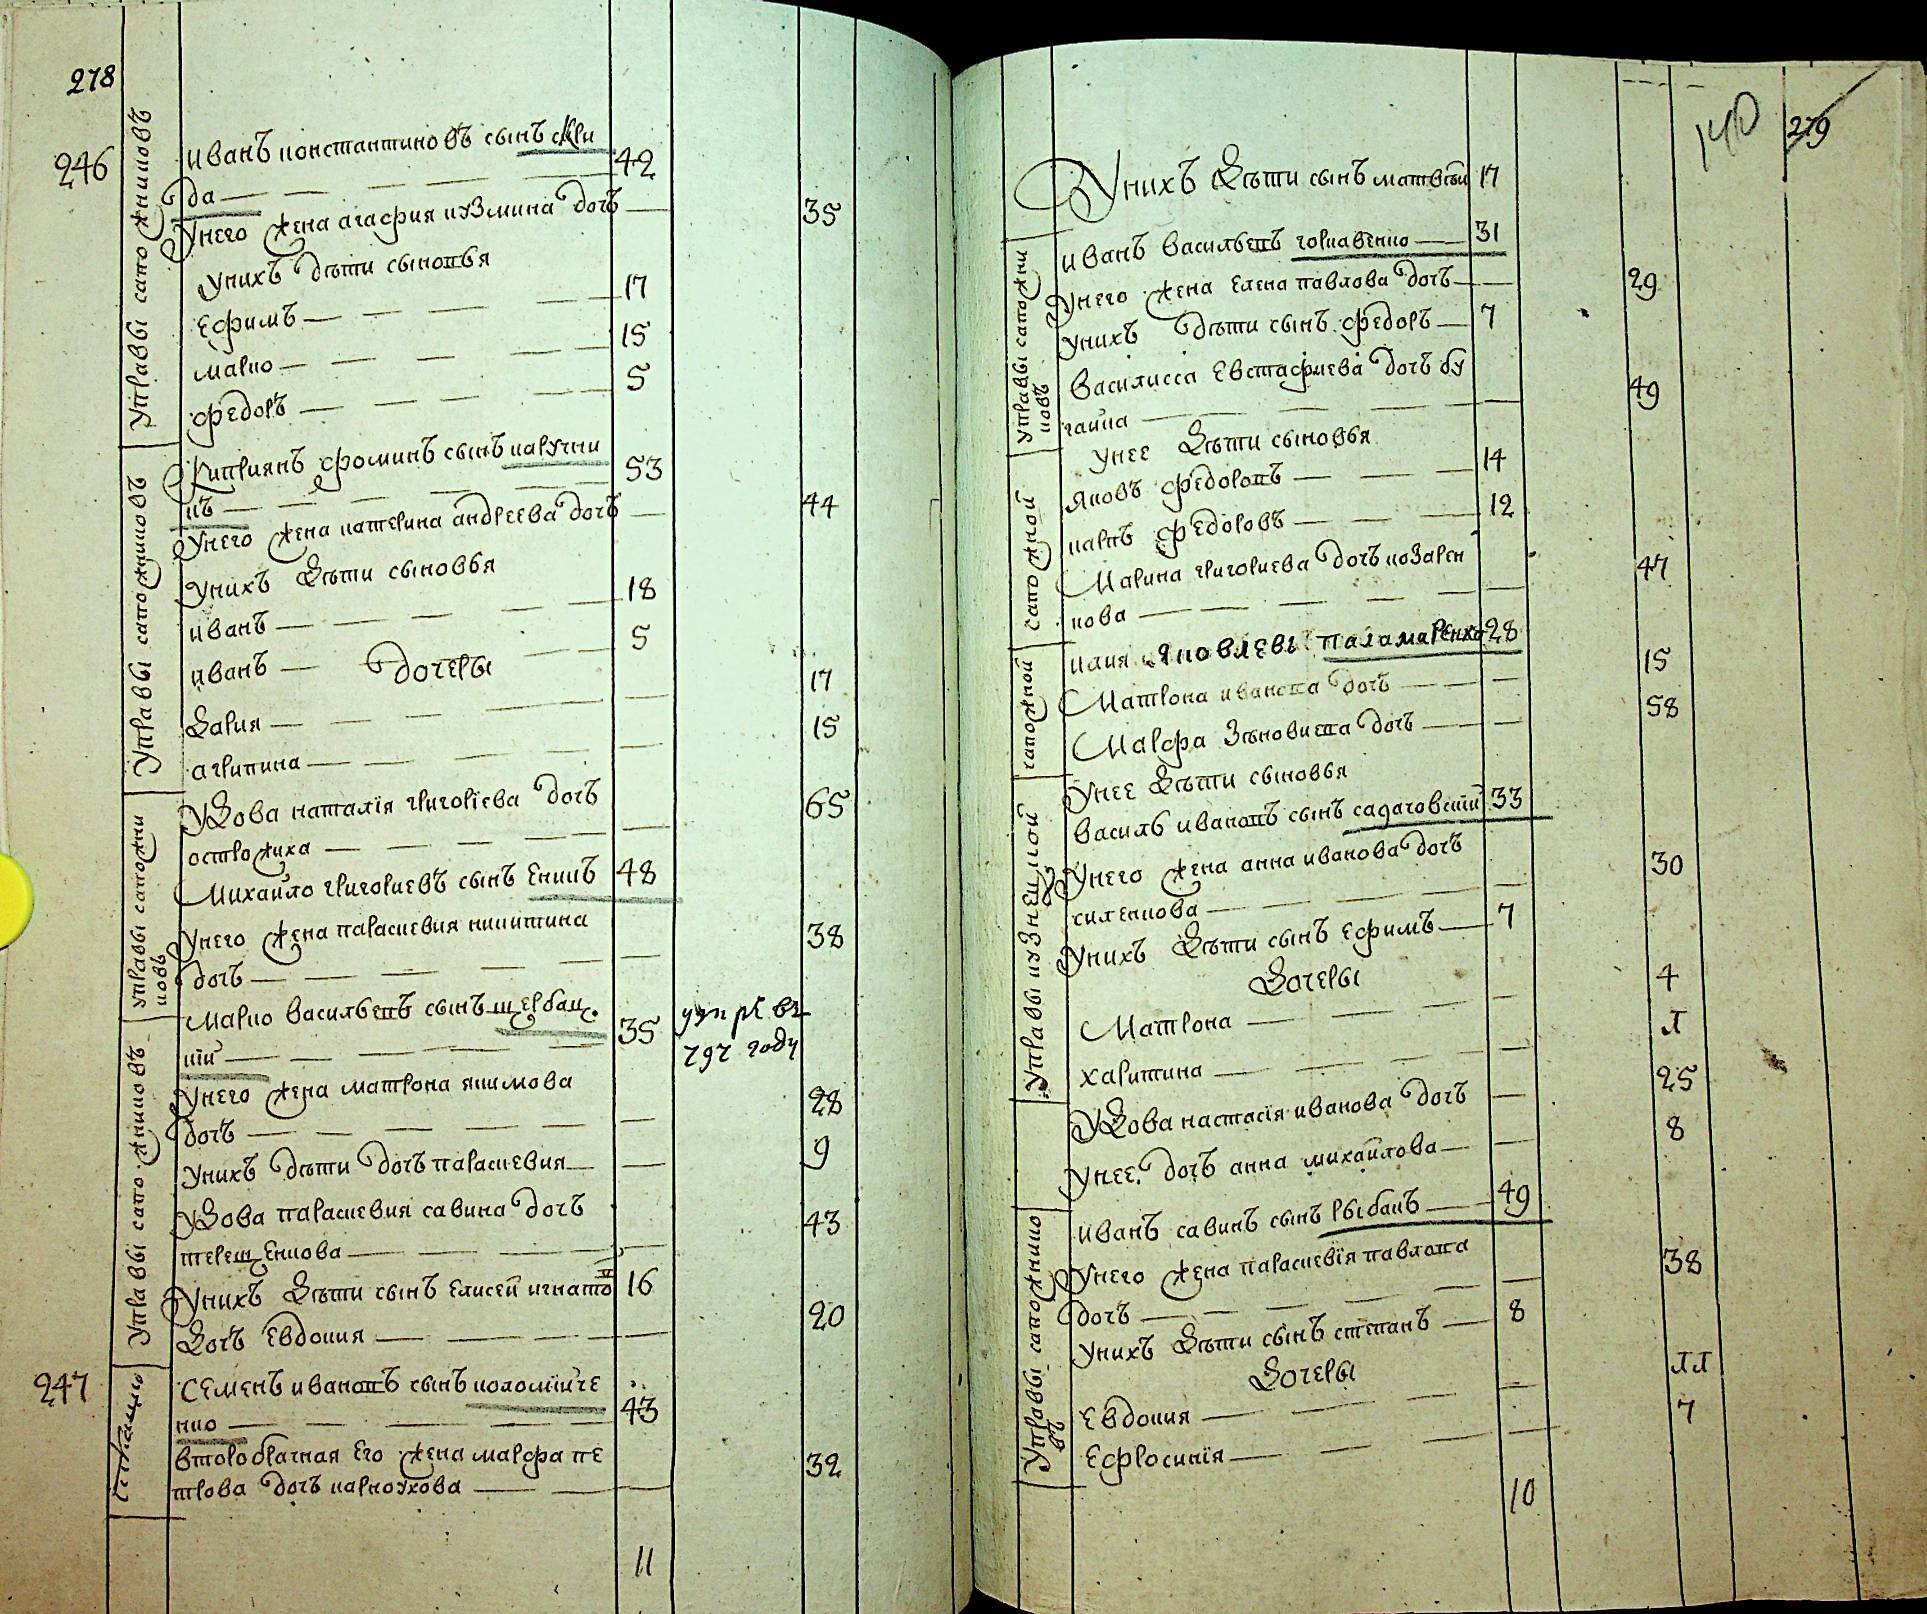 278
Управы сапожниковъ
246
Иванъ константиновъ сынъ скли
да 42
Унего жена агафия кузмина дочь 35
Унихъ дѣти сыновья
Ефимъ 17
Марко 15
Федоръ 5
Управы сапожниковъ
Киприянъ Фоминъ сынъ каручни
къ 53
Унего жена катерина андреева дочь 44
Унихъ дѣти сыновья
иванъ 18
иванъ 5
дочеры
Дария 17
агрипина 15
управы сапожни
ковъ
Удова наталія григоріева дочь 65
остро жиха
Михайло григориевъ сынъ Еникъ 48
Унего жена параскевия никитина
дочь 38
Управы сапожниковъ
Марко васильевъ сынъ щербац.
кій 35
797 году
Унего жена матрона якимова
дочь 28
Унихъ дѣти дочь параскевия 9
Удова параскевия савина дочь 43
терещенкова
Унихъ дѣти сынъ Елисей игнатов 16
Дочь Евдокия 20
247
Семенъ ивановъ сынъ коломійче
нко 43
второбрачная его жена марфа пе
трова дочь карноухова 32
11
140
279
Унихъ дѣти сынъ матвѣй 17
управы сапожни
ковъ
иванъ васильевъ горкавенко 31
Унего жена Елена павлова дочь 29
Унихъ дѣти сынъ федоръ 7
Василисса Евстафиева дочь бу
гайка 49
сапожной
Унее дѣти сыновья
Яковъ федоровъ 14
карпъ федоровъ 12
Марина григориева дочь козарен
кова 47
сапожной
Яковлевъ паламаренко 28
Матрона иванова дочь 15
Марфа Зѣновиева дочь 58
Управы кузнецкой
Унее дѣти сыновья
Василь ивановъ сынъ садаговский 33
Унего жена анна иванова дочь
силенкова 30
Унихъ дѣти сынъ Ефимъ 7
Дочеры
Матрона 4
харитина л
Удова настасія иванова дочь 25
Унее дочь анна михайлова 8
Управы сапожнико
въ
Иванъ савинъ сынъ рыбакъ 49
Унего жена параскевія павлова
дочь 38
Унихъ дѣти сынъ степанъ 8
Дочеры
Евдокия лл
Ефросинія 7
10